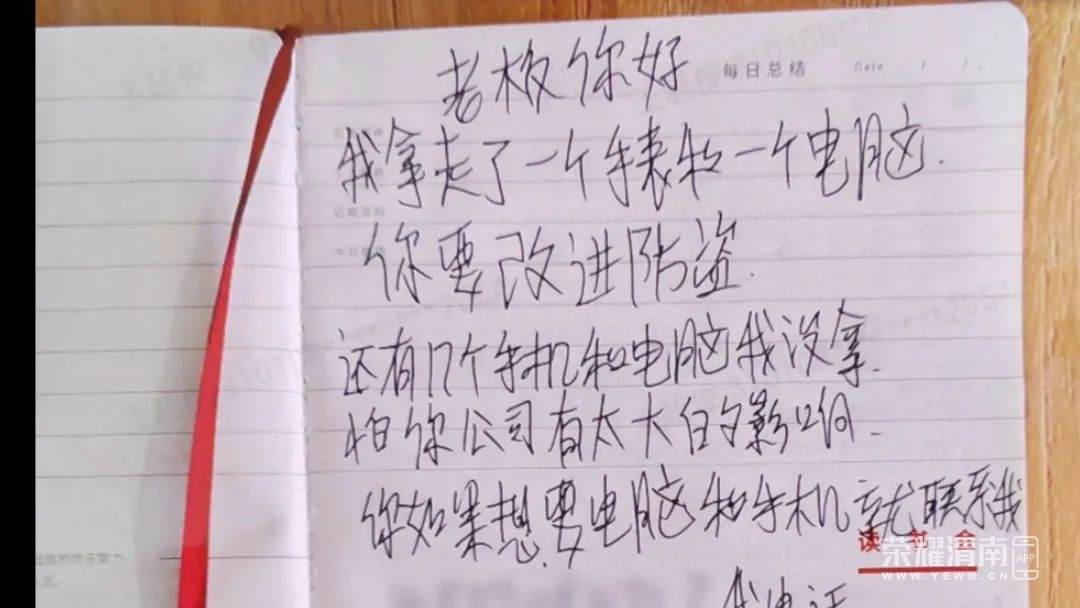 每日总结 Date / /
老板你好
我拿走了一个手表和一个电脑.
你要改进防盗.
还有几个手机和电脑我没拿.
怕你公司有太大的影响.
你如果想要电脑和手机就联系我
读 会
荣耀渭南 APP
WWW.YEWN.CN
我电话